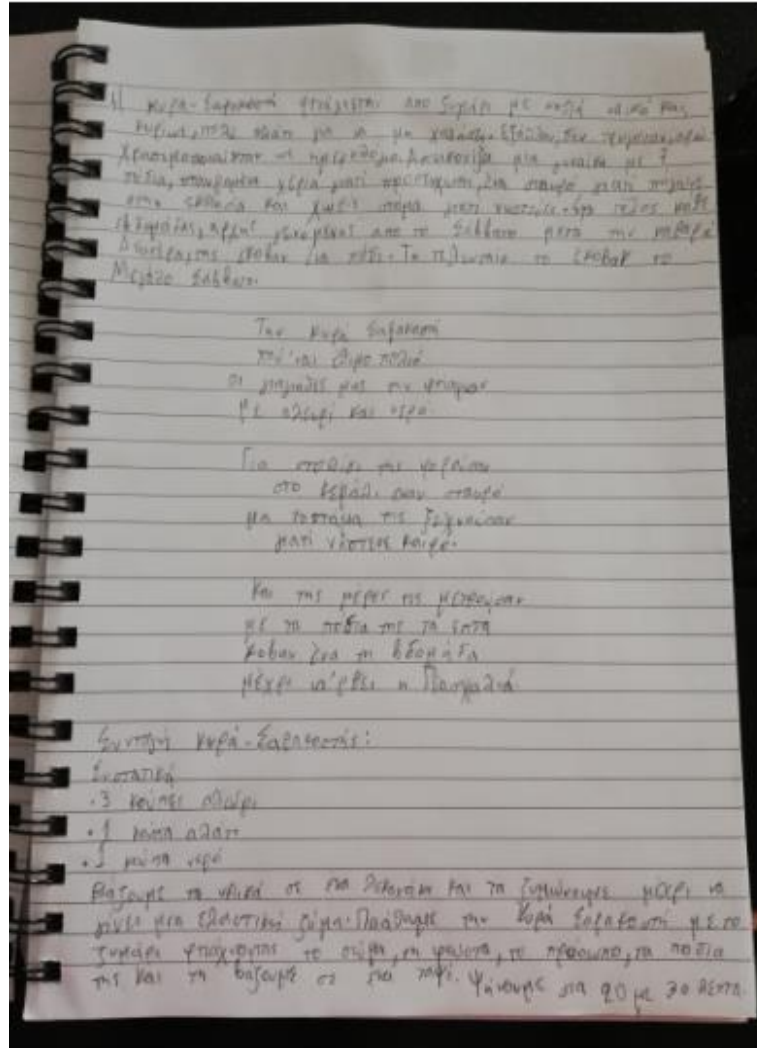 Η κυρά-Σαρακοστή φτιάχνεται από ζυμάρι με απλά υλικά και
κυρίως, πολύ αλάτι για να μη χαλάσει. Εξάλλου, δεν τρωγόταν, αφού
χρησιμοποιούνταν ως ημερολόγιο. Απεικονίζει μια γυναίκα με 7
πόδια, σταυρωμένα χέρια γιατί προσεύχεται, ένα σταυρό γιατί πηγαίνει
στην εκκλησία και χωρίς στόμα γιατί νηστεύει. Στο τέλος κάθε
εβδομάδας, αρχής γενομένης από το Σάββατο μετά την καθαρά
Δευτέρα, της έκοβαν ένα πόδι. Το τελευταίο το έκοβαν το
Μεγάλο Σάββατο.
Την κυρά Σαρακοστή
που 'ναι έθιμο παλιό
οι γιαγιάδες μας την φτιάχναν
με αλεύρι και νερό.
Για στολίδι της φορούσαν
στο κεφάλι σαν σταυρό
μα το στόμα της ξεχνούσαν
γιατί νήστευε καιρό.
Και της μέρες τις μετρούσαν
με τα πόδια της τα επτά
κόβαν ένα τη βδομάδα
μέχρι να 'ρθει η Πασχαλιά.
Συνταγή κυρά-Σαρακοστής:
Συστατικά
• 3 κούπες αλεύρι
• 1 κούπα αλάτι
• 1 κούπα νερό
Βάζουμε τα υλικά σε ένα λεκανάκι και τα ζυμώνουμε μέχρι να
γίνει μια ελαστική ζύμη. Πλάθουμε την Κυρά Σαρακοστή με το
ζυμάρι φτιάχνοντας το σώμα, τη φούστα, το πρόσωπο, τα πόδια
της και τη βάζουμε σε ένα ταψί. Ψήνουμε για 20 με 30 λεπτα.